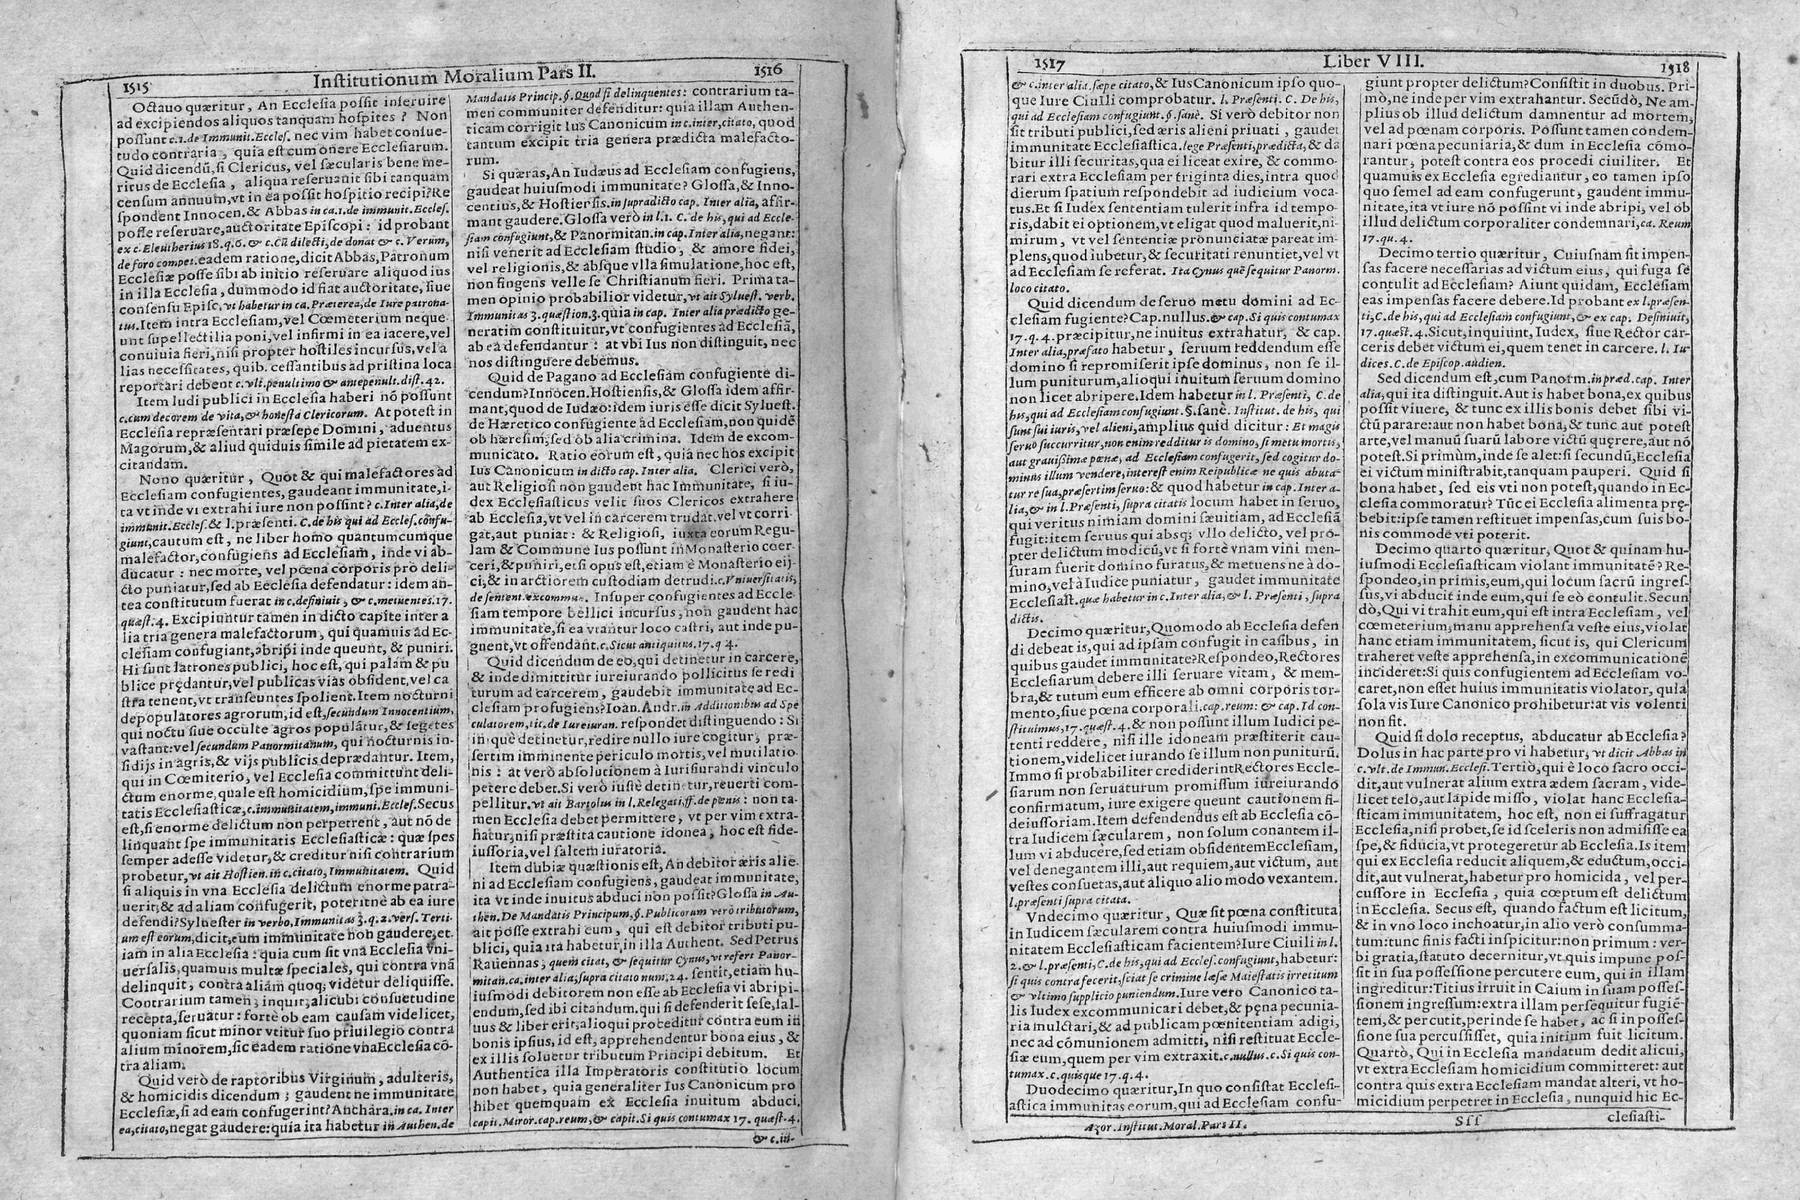 1515 Institutionum Moralium Pars II. 1516
Octauo quæritur, An Ecclesia possit inseruire
ad excipiendos aliquos tanquam hospites? Non
possunt c.1.de Immunit.Eccles. nec vim habet consue-
tudo contraria, quia est cum onere Ecclesiarum.
Quid dicendũ, si Clericus, vel sæcularis bene me-
ritus de Ecclesia, aliqua reseruauit sibi tanquam
censum annuum, vt in ea possit hospitio recipi? Re
spondent Innocen. & Abbas in ca.1. de immunit. Eccles.
posse reseruare, auctoritate Episcopi: id probant
ex c. Eleutherius 18.q.6. & c. Cũ dilecti, de donat & c. Verum,
de foro compet. eadem ratione, dicit Abbas, Patronum
Ecclesiæ posse sibi ab initio reseruare aliquod ius
in illa Ecclesia, dummodo id fiat auctoritate, siue
consensu Episc. vt habetur in ca. Præterea, de Iure patrona-
tus. Item intra Ecclesiam, vel Cœmeterium neque-
unt supellectilia poni, vel infirmi in ea iacere, vel
conuiuia fieri, nisi propter hostiles incursus, vel a
lias necessitates, quib. cessantibus ad pristina loca
reportari debent c. vlt. penultimo & antepenult. dist. 42.
Item ludi publici in Ecclesia haberi nõ possunt
c. cum decorem de vita, & honesta Clericorum. At potest in
Ecclesia repræsentari præsepe Domini, aduentus
Magorum, & aliud quiduis simile ad pietatem ex-
citandam.
Nono quæritur, Quot & qui malefactores ad
Ecclesiam confugientes, gaudeant immunitate, i-
ta vt inde vi extrahi iure non possint? c. Inter alia, de
immunit. Eccles. & l. præsenti. C. de his qui ad Eccles. confu-
giunt, cautum est, ne liber homo quantumcunque
malefactor, confugiens ad Ecclesiam, inde vi ab-
ducatur: nec morte, vel pœna corporis pro deli-
cto puniatur, sed ab Ecclesia defendatur: idem an-
tea constitutum fuerat in c. definiuit, & c. metuentes. 17.
quæst. 4. Excipiuntur tamen in dicto capite inter a
lia tria genera malefactorum, qui quamuis ad Ec-
clesiam confugiant, abripi inde queunt, & puniri.
Hi sunt latrones publici, hoc est, qui palàm & pu
blice prędantur, vel publicas vias obsident, vel ca
stra tenent, vt transeuntes spolient. Item nocturni
depopulatores agrorum, id est, secundum Innocentium,
qui noctu siue occulte agros populãtur, & segetes
vastant: vel secundum Panormitanum, qui nocturnis in-
sidijs in agris, & vijs publicis deprædantur. Item,
qui in Cœmiterio, vel Ecclesia committunt deli-
ctum enorme, quale est homicidium, spe immuni-
tatis Ecclesiasticæ, c. immunitatem, immuni. Eccles. Secus
est, si enorme delictum non perpetrent, aut nõ de
linquant spe immunitatis Ecclesiasticæ: quæ spes
semper adesse videtur, & creditur nisi contrarium
probetur, vt ait Hostien. in c. citato, Immunitatem. Quid
si aliquis in vna Ecclesia delictum enorme patra-
uerit; & ad aliam confugerit, poteritne ab ea iure
defendi? Syluester in verbo, Immunitas 3. q. 2. vers. Terti-
um est eorum, dicit, eum immunitate non gaudere, et-
iam in alia Ecclesia: quia cum sit vnã Ecclesia vni-
uersalis, quamuis multæ speciales, qui contra vnã
delinquit, contra aliàm quoq; videtur deliquisse.
Contrarium tamen; inquit, alicubi consuetudine
recepta, seruatur: fortè ob eam causam videlicet,
quoniam sicut minor vtitur suo priuilegio contra
alium minorem, sic eadem ratione vna Ecclesia cõ-
tra aliam.
Quid verò de raptoribus Virginum, adulteris,
& homicidis dicendum; gaudent ne immunitate
Ecclesiæ, si ad eam confugerint? Antharа. in ca. Inter
ea, citato, negat gaudere: quia ita habetur in Authen. de
Mandatis Princip. §. Quod si delinquentes: contrarium ta-
men communiter defenditur: quia illam Authen-
ticam corrigit Ius Canonicum in c. inter, citato, quod
tantum excipit tria genera prædicta malefacto-
rum.
Si quæras, An Iudæus ad Ecclesiam confugiens,
gaudeat huiusmodi immunitate? Glossa, & Inno-
centius, & Hostiensis. in supradicto cap. Inter alia, affir-
mant gaudere. Glossa verò in l.1. C. de his, qui ad Eccle-
siam confugiunt, & Panormitan. in cap. Inter alia, negant:
nisi venerit ad Ecclesiam studio, & amore fidei,
vel religionis, & absque vlla simulatione, hoc est,
non fingens velle se Christianum fieri. Prima ta-
men opinio probabilior videtur, vt ait Syluest. verb.
Immunitas 3. quæstion. 3. quia in cap. Inter alia prædicto ge-
neratim constituitur, vt confugientes ad Ecclesiã,
ab ea defendantur: at vbi Ius non distinguit, nec
nos distinguere debemus.
Quid de Pagano ad Ecclesiam confugiente di-
cendum? Innocen. Hostiensis, & Glossa idem affir-
mant, quod de Iudæo: idem iuris esse dicit Syluest.
de Hæretico confugiente ad Ecclesiam, non quidẽ
ob hæresim, sed ob alia crimina. Idem de excom-
municato. Ratio eorum est, quia nec hos excipit
Ius Canonicum in dicto cap. Inter alia. Clerici verò,
aut Religiosi non gaudent hac Immunitate, si iu-
dex Ecclesiasticus velit suos Clericos extrahere
ab Ecclesia, vt vel in carcerem trudat, vel vt corri
gat, aut puniat: & Religiosi, iuxta eorum Regu-
lam & Commune Ius possunt in Monasterio coer-
ceri, & puniri, etsi opus est, etiam è Monasterio eij-
ci, & in arctiorem custodiam detrudi. c. Vniuersitatis,
de sentent. excommu. Insuper confugientes ad Eccle
siam tempore bellici incursus, non gaudent hac
immunitate, si ea vtantur loco castri, aut inde pu-
gnent, vt offendant. c. Sicut antiquitus. 17. q. 4.
Quid dicendum de eo, qui detinetur in carcere,
& inde dimittitur iureiurando pollicitus se redi
turum ad carcerem, gaudebit immunitate ad Ec-
clesiam profugiens? Ioan. Andr. in Additionibus ad Spe
culatorem, tit. de Iureiuran. respondet distinguendo: Si
iniquè detinetur, redire nullo iure cogitur, præ-
sertim imminente periculo mortis, vel mutilatio
nis: at verò absolutionem à Iurisiurandi vinculo
petere debet. Si verò iustè detinetur, reuerti com-
pellitur. vt ait Bartolus in l. Relegati, ff. de pœnis: non ta-
men Ecclesia debet permittere, vt per vim extra-
hatur, nisi præstita cautione idonea, hoc est fide-
iussoria, vel saltem iuratoria.
Item dubiæ quæstionis est, An debitor æris alie
ni ad Ecclesiam confugiens, gaudeat immunitate,
ita vt inde inuitus abduci non possit? Glossa in Au-
then. De Mandatis Principum, §. Publicorum verò tributorum,
ait posse extrahi eum, qui est debitor tributi pu-
blici, quia ita habetur, in illa Authent. Sed Petrus
Rauennas, quem citat, & sequitur Cynus, vt refert Panor-
mitan. ca. inter alia, supra citato num. 24. sentit, etiam hu-
iusmodi debitorem non esse ab Ecclesia vi abripi-
endum, sed ibi citandum. qui si defenderit sese, sal-
uus & liber erit; alioqui proceditur contra eum in
bonis ipsius, id est, apprehendentur bona eius, &
ex illis soluetur tributum Principi debitum. Et
Authentica illa Imperatoris constitutio locum
non habet, quia generaliter Ius Canonicum pro
hibet quemquam ex Ecclesia inuitum abduci.
capit. Miror. cap. reum, & capit. Si quis contumax 17. quæst. 4.
& c. in-
1517 Liber VIII. 1518
& c. inter alia. sæpe citato, & Ius Canonicum ipso quo-
que Iure Ciuili comprobatur. l. Præsenti. C. De his,
qui ad Ecclesiam confugiunt. §. sanè. Si verò debitor non
sit tributi publici, sed æris alieni priuati, gaudet
immunitate Ecclesiastica. lege Præsenti, prædicta, & da
bitur illi securitas, qua ei liceat exire, & commo-
rari extra Ecclesiam per triginta dies, intra quod
dierum spatium respondebit ad iudicium voca-
tus. Et si Iudex sententiam tulerit infra id tempo-
ris, dabit ei optionem, vt eligat quod maluerit, ni-
mirum, vt vel sententiæ pronunciatæ pareat im-
plens, quod iubetur, & securitati renuntiet, vel vt
ad Ecclesiam se referat. Ita Cynus quẽ sequitur Panorm.
loco citato.
Quid dicendum de seruo metu domini ad Ec-
clesiam fugiente? Cap. nullus. & cap. Si quis contumax
17. q. 4. præcipitur, ne inuitus extrahatur, & cap.
Inter alia, præfato habetur, seruum reddendum esse
domino si repromiserit ipse dominus, non se il-
lum puniturum, alioqui inuitum seruum domino
non licet abripere. Idem habetur in l. Præsenti, C. de
his, qui ad Ecclesiam confugiunt. §. sanè. Institut. de his, qui
sunt sui iuris, vel alieni, amplius quid dicitur: Et magis
seruo succurritur, non enim redditur is domino, si metu mortis,
aut grauissimæ pœnæ, ad Ecclesiam confugerit, sed cogitur do-
minus illum vendere, interest enim Reipublicæ ne quis abuta-
tur re sua, præsertim seruo: & quod habetur in cap. Inter a-
lia, & in l. Præsenti, supra citatis locum habet in seruo,
qui veritus nimiam domini sæuitiam, ad Ecclesiã
fugit: item seruus qui absq; vllo delicto, vel pro-
pter delictum modicũ, vt si fortè vnam vini men-
suram fuerit domino furatus, & metuens ne à do-
mino, vel à Iudice puniatur, gaudet immunitate
Ecclesiast. quæ habetur in c. Inter alia, & l. Præsenti, supra
dictis.
Decimo quæritur, Quomodo ab Ecclesia defen
di debeat is, qui ad ipsam confugit in casibus, in
quibus gaudet immunitate? Respondeo, Rectores
Ecclesiarum debere illi seruare vitam, & mem-
bra, & tutum eum efficere ab omni corporis tor-
mento, siue pœna corporali. cap. reum: & cap. Id con-
stituimus, 17. quæst. 4. & non possunt illum Iudici pe-
tenti reddere, nisi ille idoneam præstiterit cau-
tionem, videlicet iurando se illum non puniturũ.
Immo si probabiliter crediderint Rectores Eccle-
siarum non seruaturum promissum iureiurando
confirmatum, iure exigere queunt cautionem fi-
deiussoriam. Item defendendus est ab Ecclesia cõ-
tra Iudicem sæcularem, non solum conantem il-
lum vi abducere, sed etiam obsidentem Ecclesiam,
vel denegantem illi, aut requiem, aut victum, aut
vestes consuetas, aut aliquo alio modo vexantem.
l. præsenti supra citata.
Vndecimo quæritur, Quæ sit pœna constituta
in Iudicem sæcularem contra huiusmodi immu-
nitatem Ecclesiasticam facientem? Iure Ciuili in l.
2. & l. præsenti, C. de his, qui ad Eccles. confugiunt, habetur:
si quis contra fecerit, sciat se crimine læsæ Maiestatis irretitum
& vltimo supplicio puniendum. Iure vero Canonico ta-
lis Iudex excommunicari debet, & pęna pecunia-
ria mulctari, & ad publicam pœnitentiam adigi,
nec ad cõmunionem admitti, nisi restituat Eccle-
siæ eum, quem per vim extraxit. c. nullus. c. Si quis con-
tumax. c. quisque 17. q. 4.
Duodecimo quæritur, In quo consistat Ecclesi-
astica immunitas eorum, qui ad Ecclesiam confu-
giunt propter delictum? Consistit in duobus. Pri-
mò, ne inde per vim extrahantur. Secũdò, Ne am-
plius ob illud delictum damnentur ad mortem,
vel ad pœnam corporis. Possunt tamen condem-
nari pœna pecuniaria, & dum in Ecclesia cõmo-
rantur, potest contra eos procedi ciuiliter. Et
quamuis ex Ecclesia egrediantur, eo tamen ipso
quo semel ad eam confugerunt, gaudent immu-
nitate, ita vt iure nõ possint vi inde abripi, vel ob
illud delictum corporaliter condemnari, ca. Reum
17. qu. 4.
Decimo tertio quæritur, Cuiusnam sit impen-
sas facere necessarias ad victum eius, qui fuga se
contulit ad Ecclesiam? Aiunt quidam, Ecclesiam
eas impensas facere debere. Id probant ex l. præsen-
ti, C. de his, qui ad Ecclesiam confugiunt, & ex cap. Definiuit,
17. quæst. 4. Sicut, inquiunt, Iudex, siue Rector car-
ceris debet victum ei, quem tenet in carcere. l. Iu-
dices. C. de Episcop. audien.
Sed dicendum est, cum Panorm. in præd. cap. Inter
alia, qui ita distinguit. Aut is habet bona, ex quibus
possit viuere, & tunc ex illis bonis debet sibi vi-
ctũ parare: aut non habet bona, & tunc aut potest
arte, vel manuũ suarũ labore victũ quęrere, aut nõ
potest. Si primùm, inde se alet: si secundũ, Ecclesia
ei victum ministrabit, tanquam pauperi. Quid si
bona habet, sed eis vti non potest, quando in Ec-
clesia commoratur? Tũc ei Ecclesia alimenta prę-
bebit: ipse tamen restituet impensas, cum suis bo-
nis commode vti poterit.
Decimo quarto quæritur, Quot & quinam hu-
iusmodi Ecclesiasticam violant immunitatẽ? Re-
spondeo, in primis, eum, qui locum sacrũ ingres-
sus, vi abducit inde eum, qui se eò contulit. Secun
dò, Qui vi trahit eum, qui est intra Ecclesiam, vel
cœmeterium, manu apprehensa veste eius, violat
hanc etiam immunitatem, sicut is, qui Clericum
traheret veste apprehensa, in excommunicationẽ
incideret: Si quis confugientem ad Ecclesiam vo-
caret, non esset huius immunitatis violator, quia
sola vis Iure Canonico prohibetur: at vis volenti
non fit.
Quid si dolo receptus, abducatur ab Ecclesia?
Dolus in hac parte pro vi habetur, vt dicit Abbas in
c. vlt. de Immun. Ecclesi. Tertiò, qui è loco sacro occi-
dit, aut vulnerat alium extra ædem sacram, vide-
licet telo, aut lapide misso, violat hanc Ecclesia-
sticam immunitatem, hoc est, non ei suffragatur
Ecclesia, nisi probet, se id sceleris non admisisse ea
spe, & fiducia, vt protegeretur ab Ecclesia. Is item
qui ex Ecclesia reducit aliquem, & eductum, occi-
dit, aut vulnerat, habetur pro homicida, vel per-
cussore in Ecclesia, quia cœptum est delictum
in Ecclesia. Secus est, quando factum est licitum,
& in vno loco inchoatur, in alio verò consumma-
tum: tunc finis facti inspicitur: non primum: ver-
bi gratia, statuto decernitur, vt quis impune pos-
sit in sua possessione percutere eum, qui in illam
ingreditur: Titius irruit in Caium in suam posses-
sionem ingressum: extra illam persequitur fugiẽ-
tem, & percutit, perinde se habet, ac si in posses-
sione sua percussisset, quia initium fuit licitum.
Quartò, Qui in Ecclesia mandatum dedit alicui,
vt extra Ecclesiam homicidium committeret: aut
contra quis extra Ecclesiam mandat alteri, vt ho-
micidium perpetret in Ecclesia, nunquid hic Ec-
Azor. Institut. Moral. Pars II. Sss clesiasti-